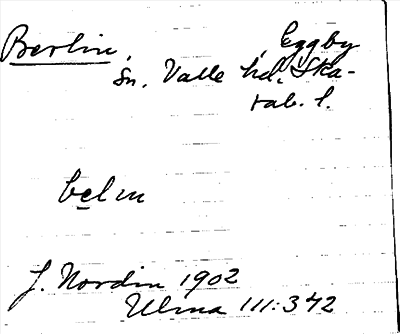 Berlin, Eggby
Sn. Valle hd. Ska-
rab. l.
belin
J. Nordin 1902
Ulma 111:342